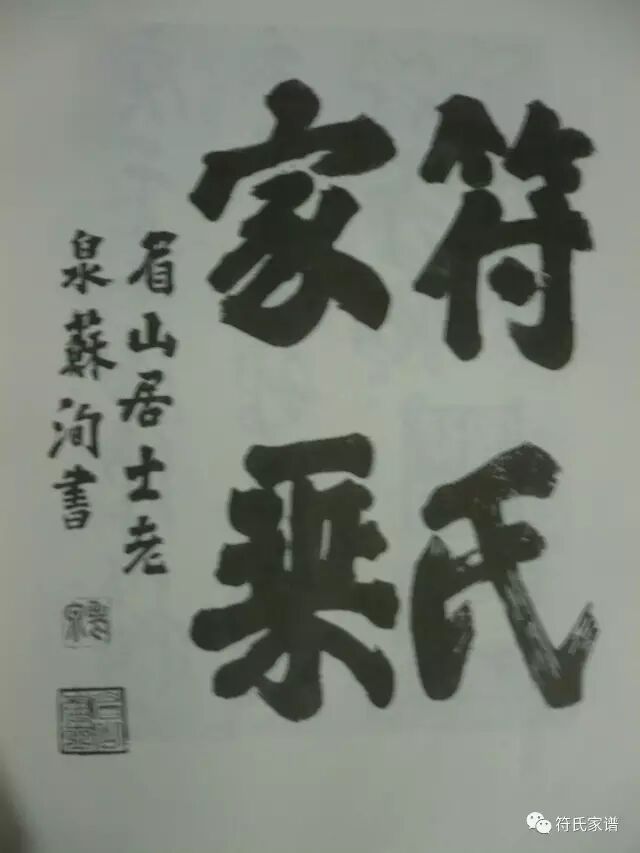 符氏
家乘
眉山居士老
泉蘇洵書
符氏家谱